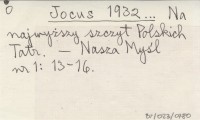 Jocus 1932... Na
najwyższy szczyt Polskich
Tatr. — Nasza Myśl
nr 1: 13-16.